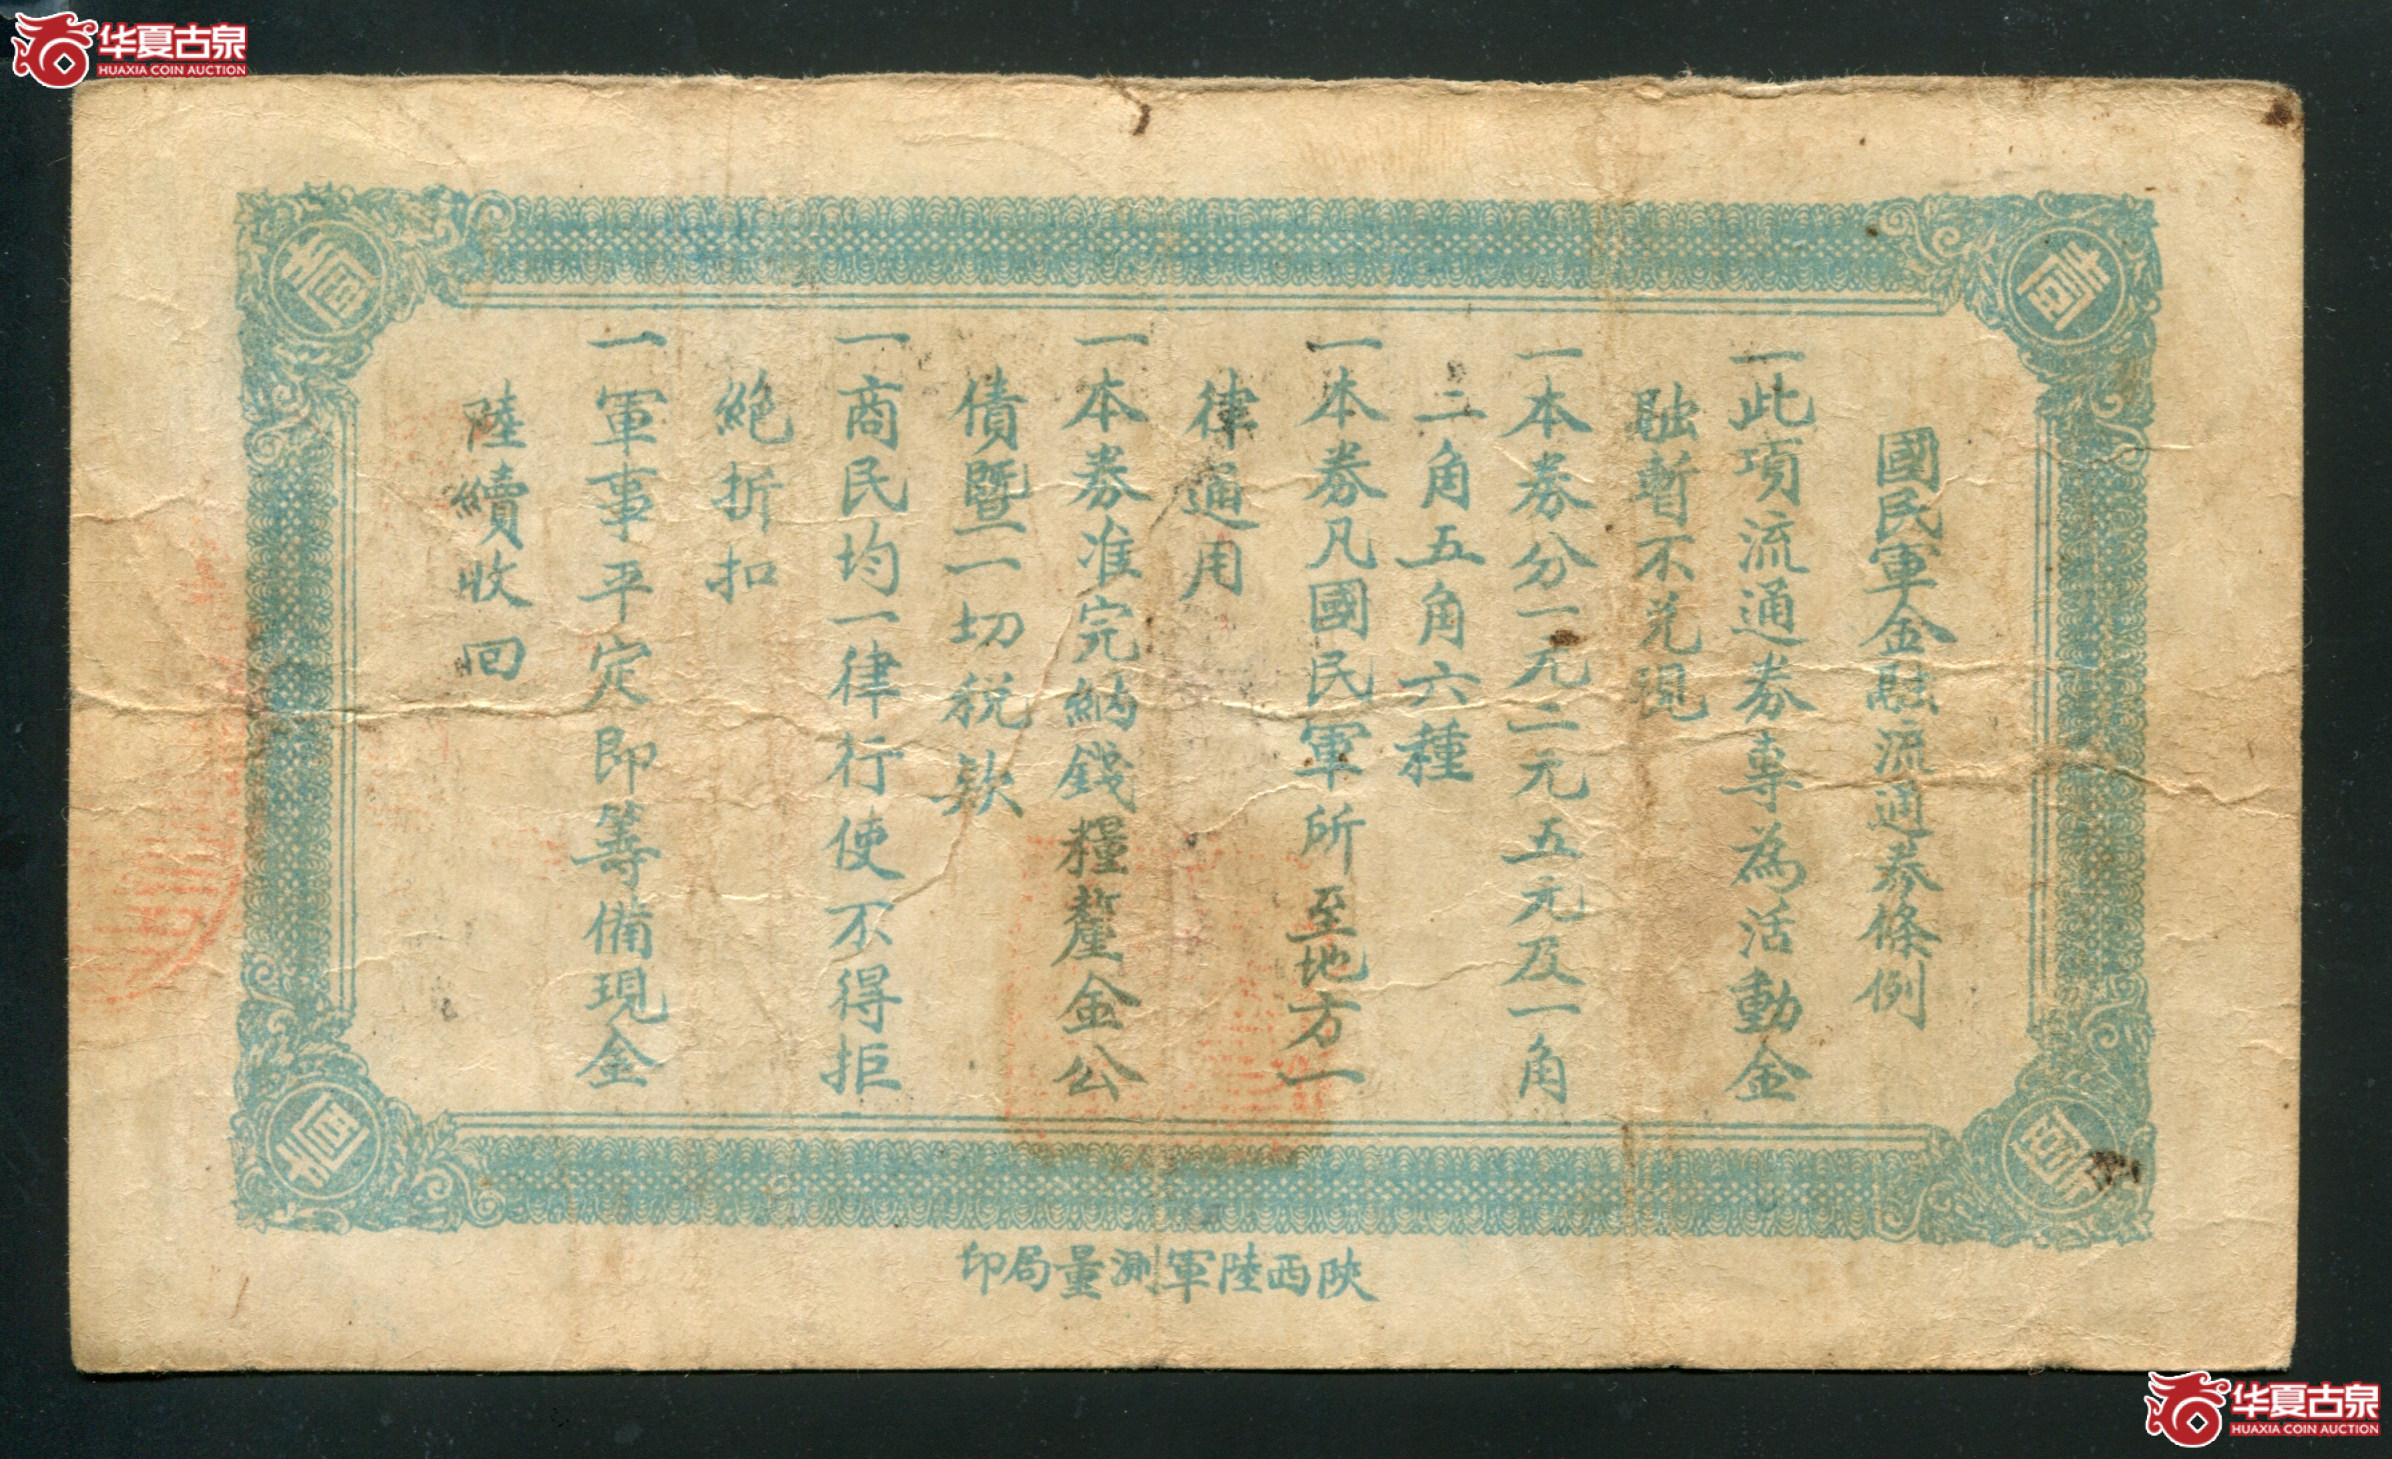 华夏古泉
HUAXIA COIN AUCTION
壹
壹
國民軍金融流通券條例
一此項流通券專為活動金
融暫不兌現
一本券分一元二元五元及一角
二角五角六種
一本券凡國民軍所至地方一
律通用
一本券准完納錢糧釐金公
債暨一切稅欵
一商民均一律行使不得拒
絕折扣
一軍事平定即籌備現金
陸續收回
壹
壹
陝西陸軍測量局印
华夏古泉
HUAXIA COIN AUCTION